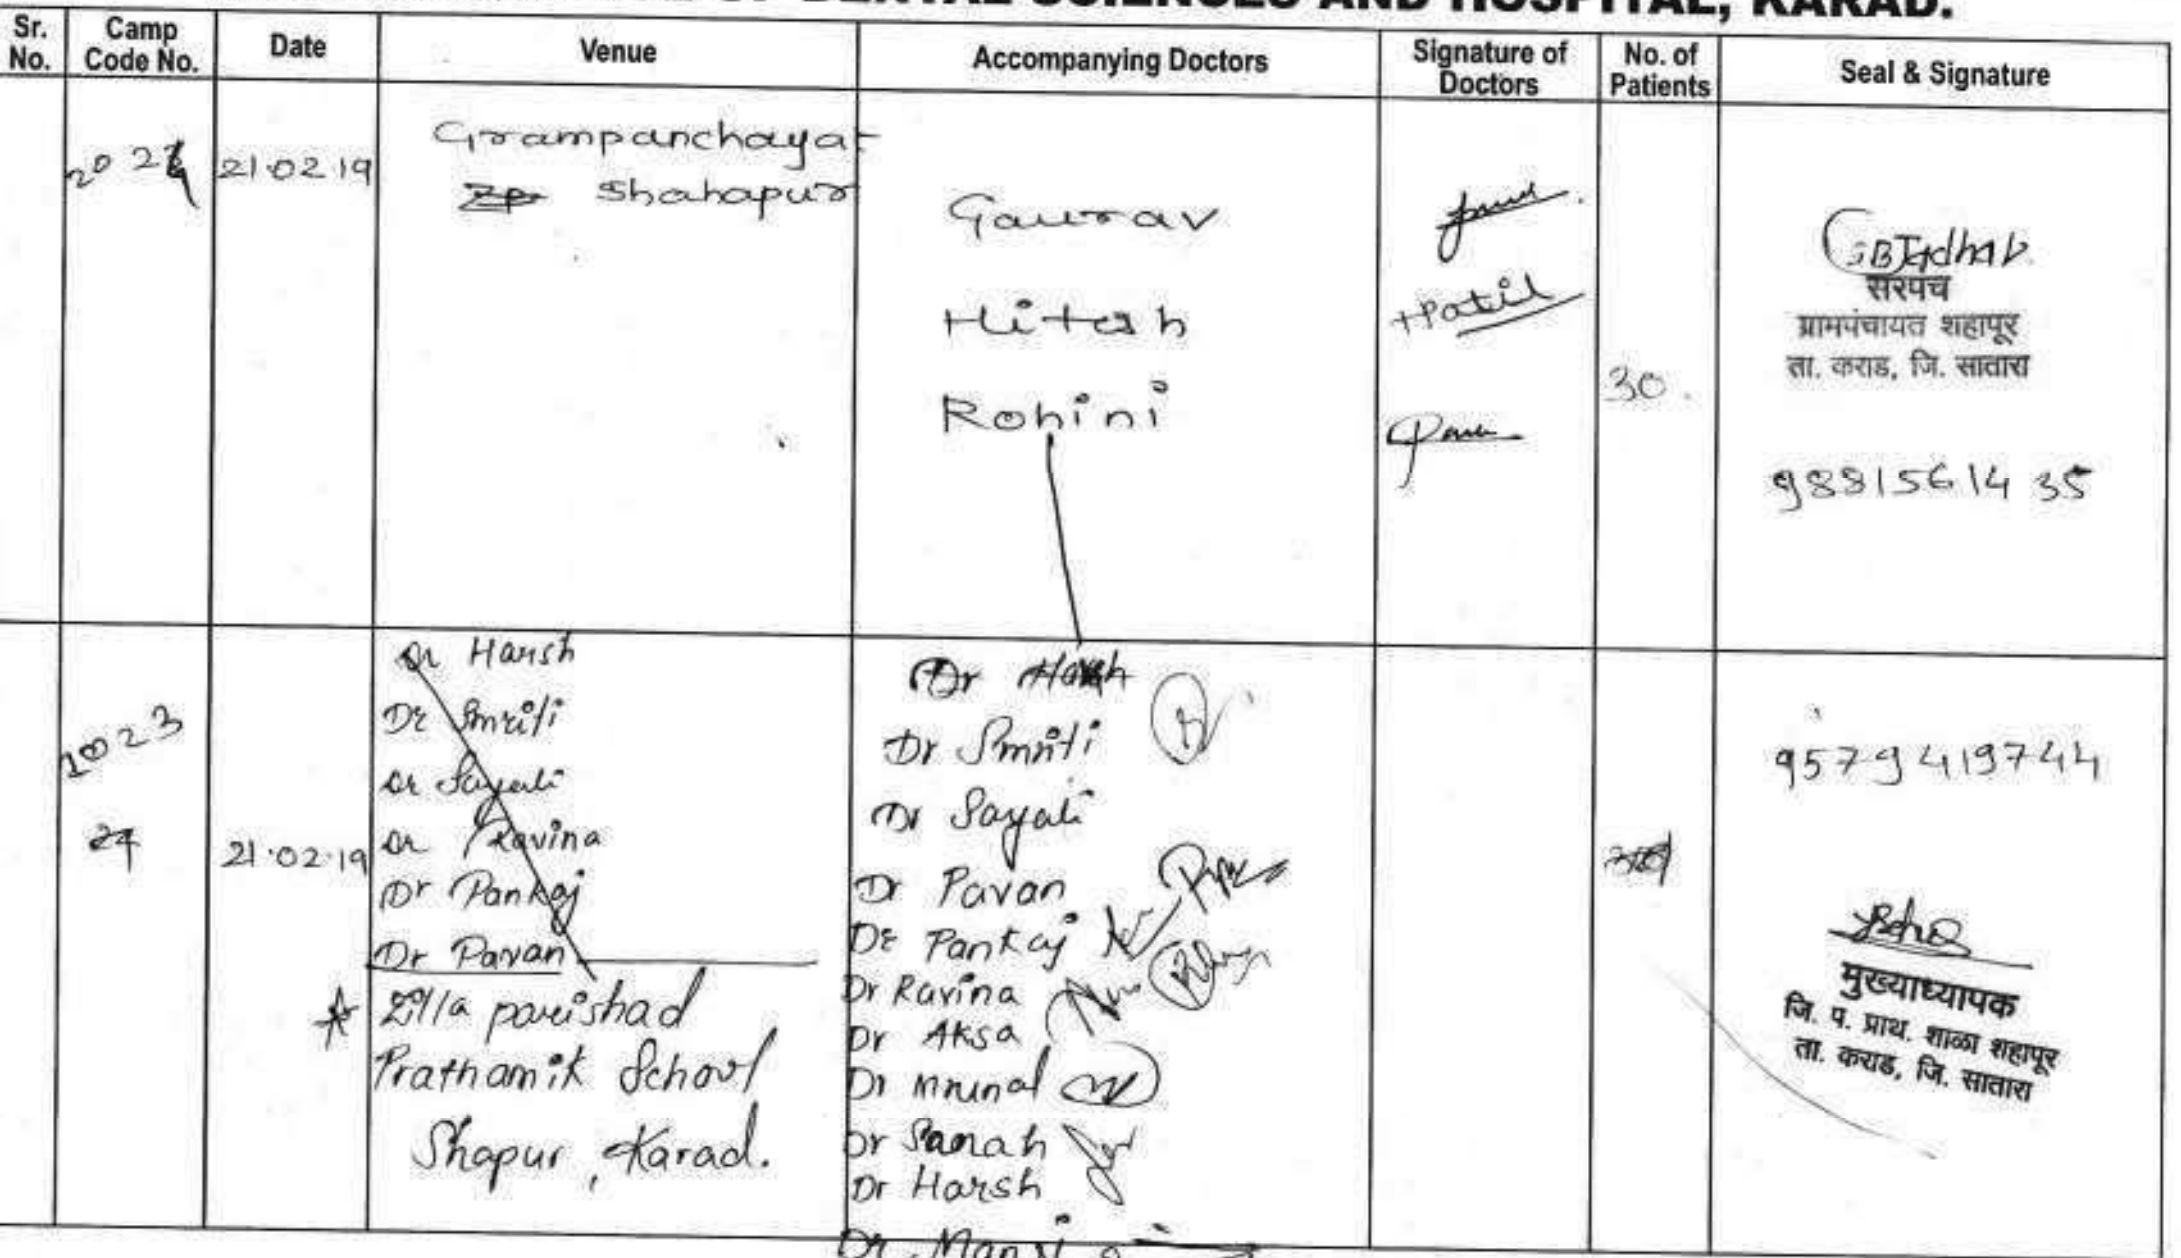 OF DENTAL SCIENCES AND HOSPITAL, KARAD.
Sr. No. Camp Code No. Date Venue Accompanying Doctors Signature of Doctors No. of Patients Seal & Signature
21.02.19
Grampanchayat
Zp Shahapur
Gaurav
Hitesh
Rohini
HPatil
30.
GBJadhav
सरपंच
ग्रामपंचायत शहापूर
ता. कराड, जि. सातारा
9881561435
1023
24
21.02.19
Dr Harsh
Dr Smriti
Dr Sayali
Dr Ravina
Dr Pankaj
Dr Pavan
Zilla parishad
Prathamik School
Shapur, Karad.
Dr Harsh
Dr Smriti
Dr Sayali
Dr Pavan
Dr Pankaj
Dr Ravina
Dr Aksa
Dr Mrunal
Dr Sanah
Dr Harsh
Dr. Mansi
9579419744
मुख्याध्यापक
जि. प. प्राथ. शाळा शहापूर
ता. कराड, जि. सातारा